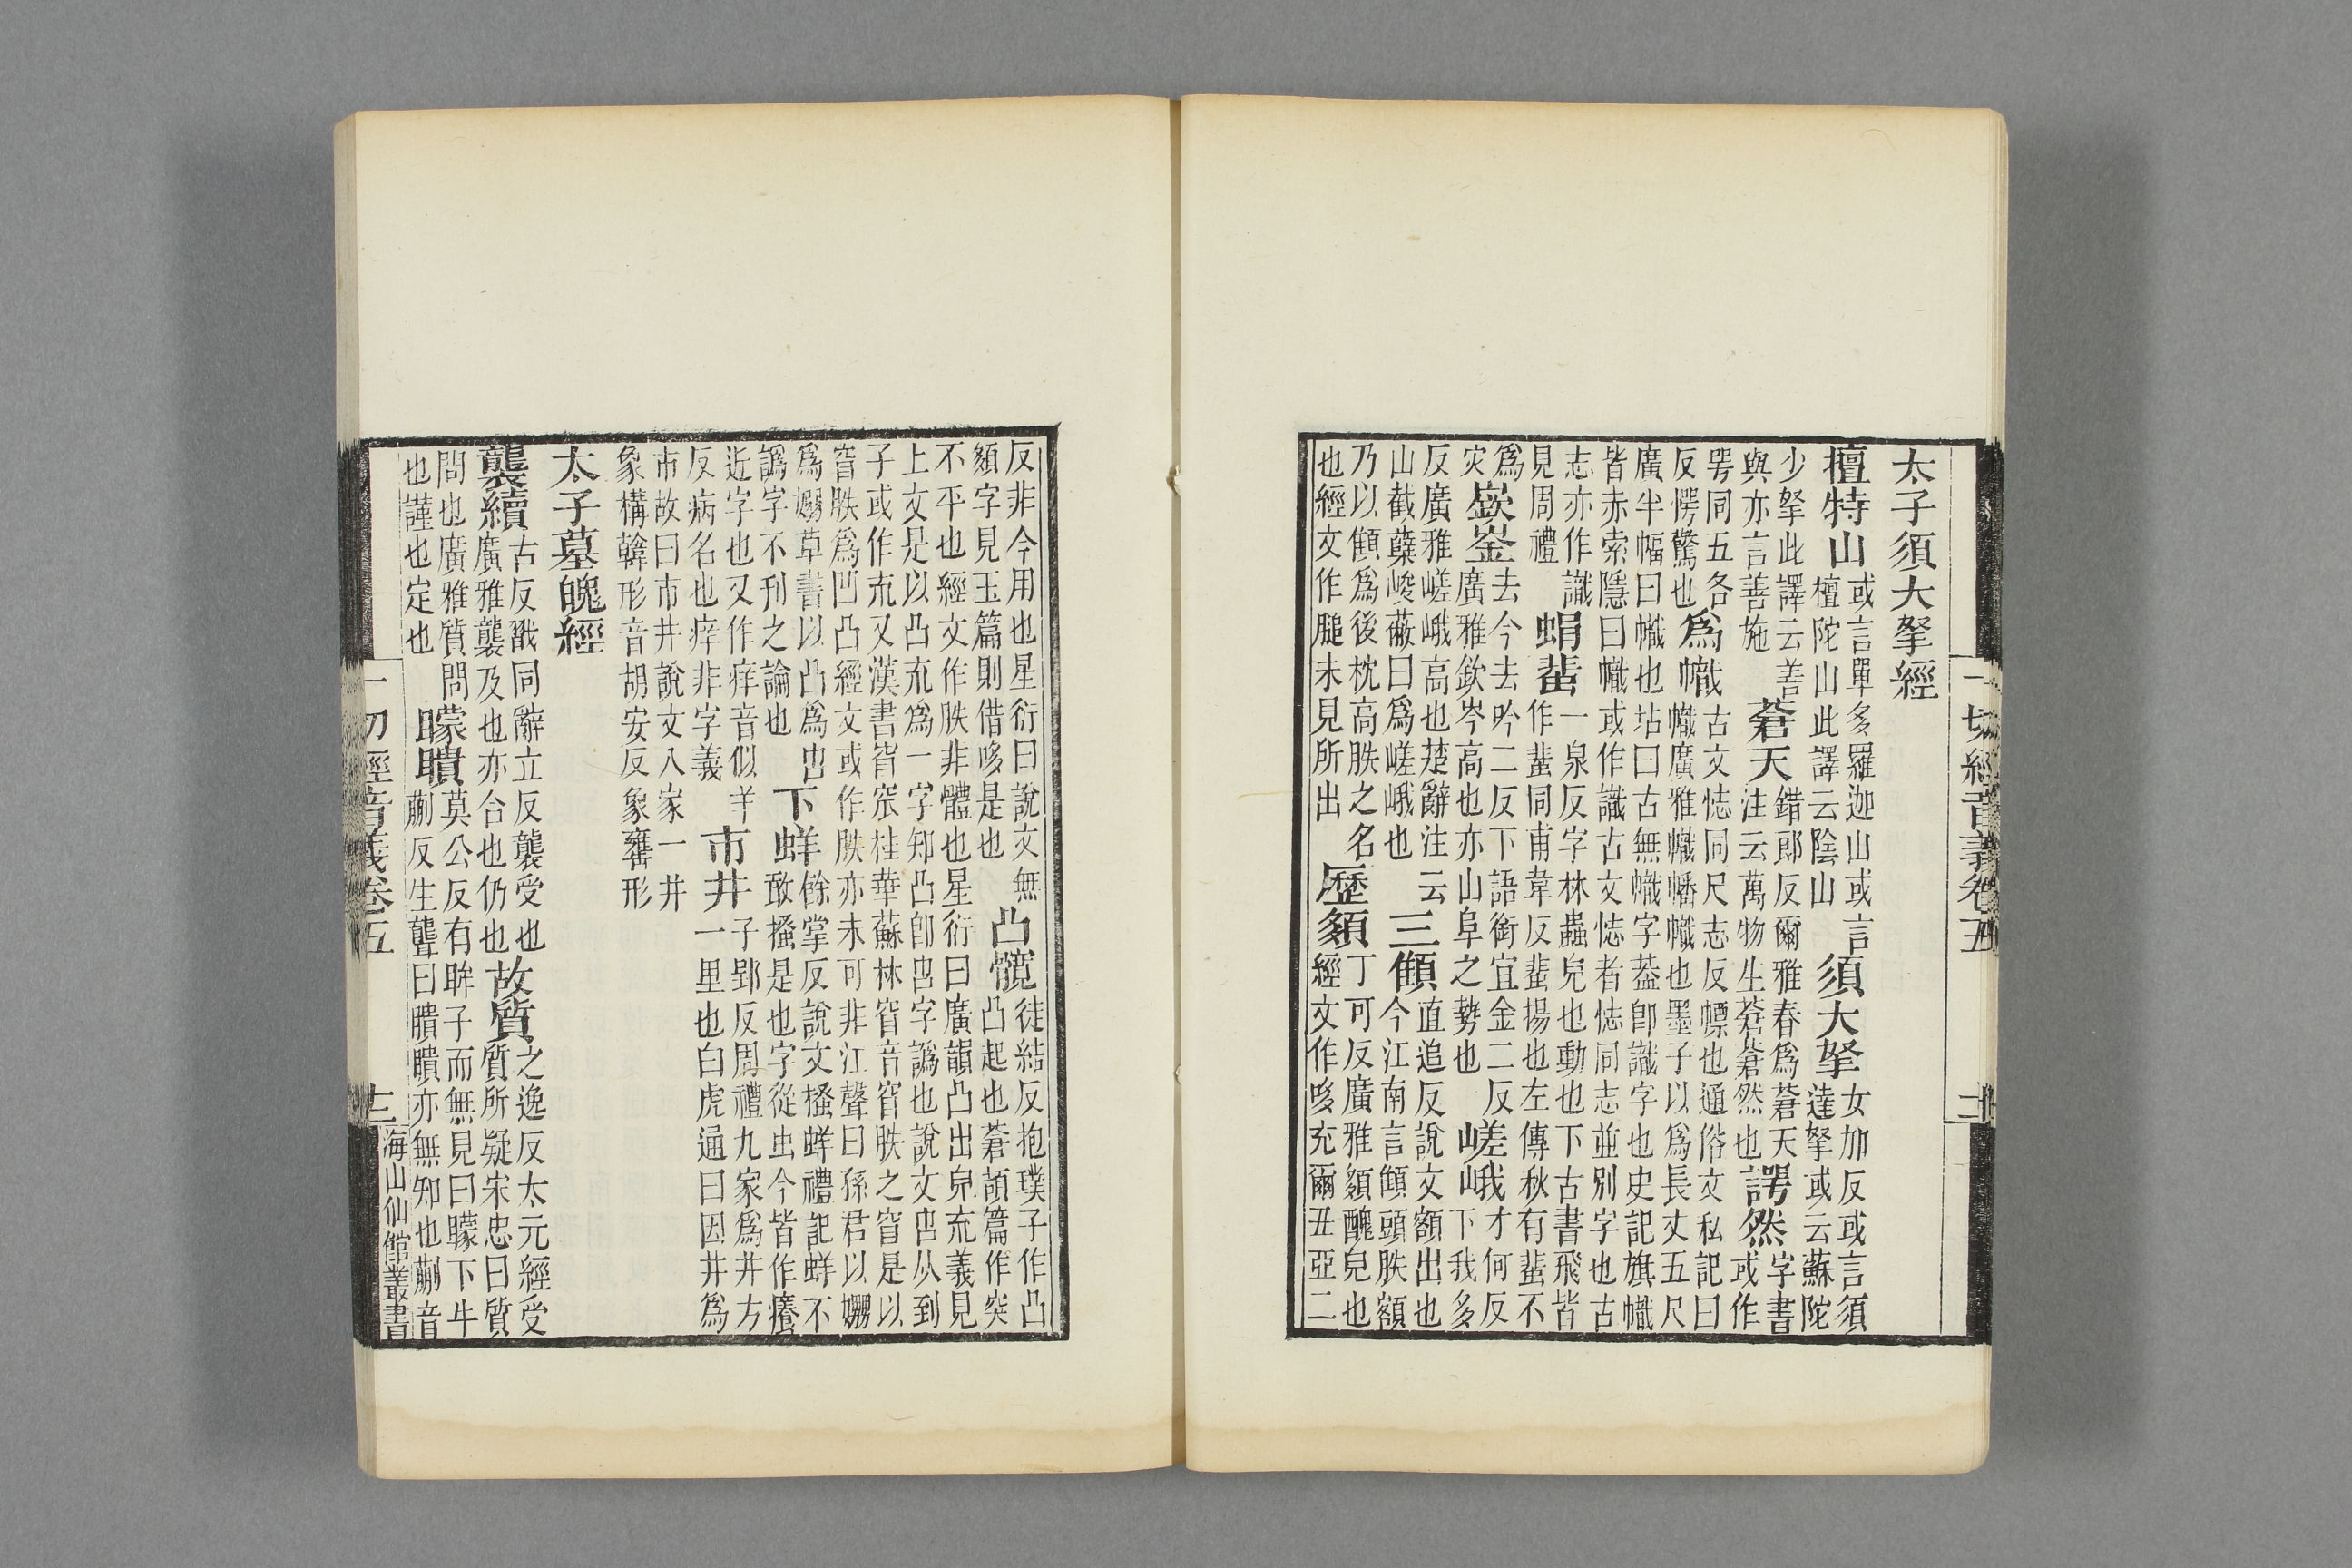 一切經音義卷五 十二
太子須大拏經
檀特山 或言單多羅迦山或言
檀陀山此譯云陰山
須大拏 女加反或言須
達拏或云蘇陀
少拏此譯云善
與亦言善施
蒼天 錯郎反爾雅春爲蒼天
注云萬物生蒼蒼然也
諤然 字書
或作
咢同五各
反愕驚也
爲幟 古文㤅同尺志反幖也通俗文私記曰
幟廣雅幟幡幟也墨子以爲長丈五尺
廣半幅曰幟也坫曰古無幟字葢卽識字也史記旗幟
皆赤索隱曰幟或作識古文㤅者㤅同志並別字也古
志亦作識
見周禮
蜎蜚 一泉反字林蟲皃也動也下古書飛皆
作蜚同甫韋反蜚揚也左傳秋有蜚不
爲
灾
嶔崟 去今去吟二反下語銜宜金二反
廣雅欽岑高也亦山阜之勢也
嵯峨 才何反
下我多
反廣雅嵯峨高也楚辭注云
山巀嶭峻蔽曰爲嵯峨也
三顀 直追反說文額出也
今江南言顀頭胅額
乃以顀爲後枕高胅之名
也經文作膇未見所出
歷䫂 丁可反廣雅䫂醜皃也
經文作哆充爾丑亞二
反非今用也星衍曰說文無
䫂字見玉篇則借哆是也
凸髖 徒結反抱璞子作凸
凸起也蒼頡篇作突
不平也經文作胅非體也星衍曰廣韻凸出皃㐬義見
上文是以凸㐬爲一字知凸卽𠫓字譌也說文𠫓从到
子或作㐬又漢書窅窊桂華蘇林窅音窅胅之窅是以
窅胅爲凹凸經文或作胅亦未可非江聲曰孫君以嫋
爲嫋草書以凸爲𠫓
譌字不刊之論也
下蛘 餘掌反說文搔蛘禮記蛘不
敢搔是也字從虫今皆作癢
近字也又作痒音似羊
反病名也痒非字義
市井 子郢反周禮九家爲井方
一里也白虎通曰因井爲
市故曰市井說文八家一井
象構韓形音胡安反象罋形
太子墓魄經
襲續 古反戩同辭立反襲受也
廣雅襲及也亦合也仍也
故質 之逸反太元經受
質所疑宋忠曰質
問也廣雅質問
也謹也定也
矇瞶 莫公反有眸子而無見曰矇下牛
蒯反生聾曰瞶瞶亦無知也蒯音
一切經音義卷五 十二 海山仙館叢書